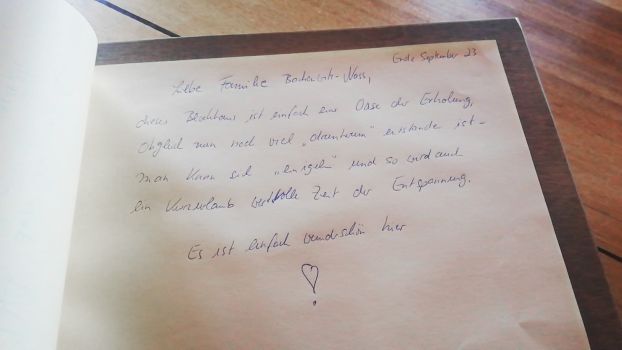 Ende September 23
Liebe Familie
dieses Blockhaus ist einfach eine Oase der Erholung,
Obgleich nun noch viel „drumherum“ entstanden ist -
man kann sich „einigeln“ und so wird auch
ein Kurzurlaub wertvolle Zeit der Entspannung.
Es ist einfach wunderschön hier